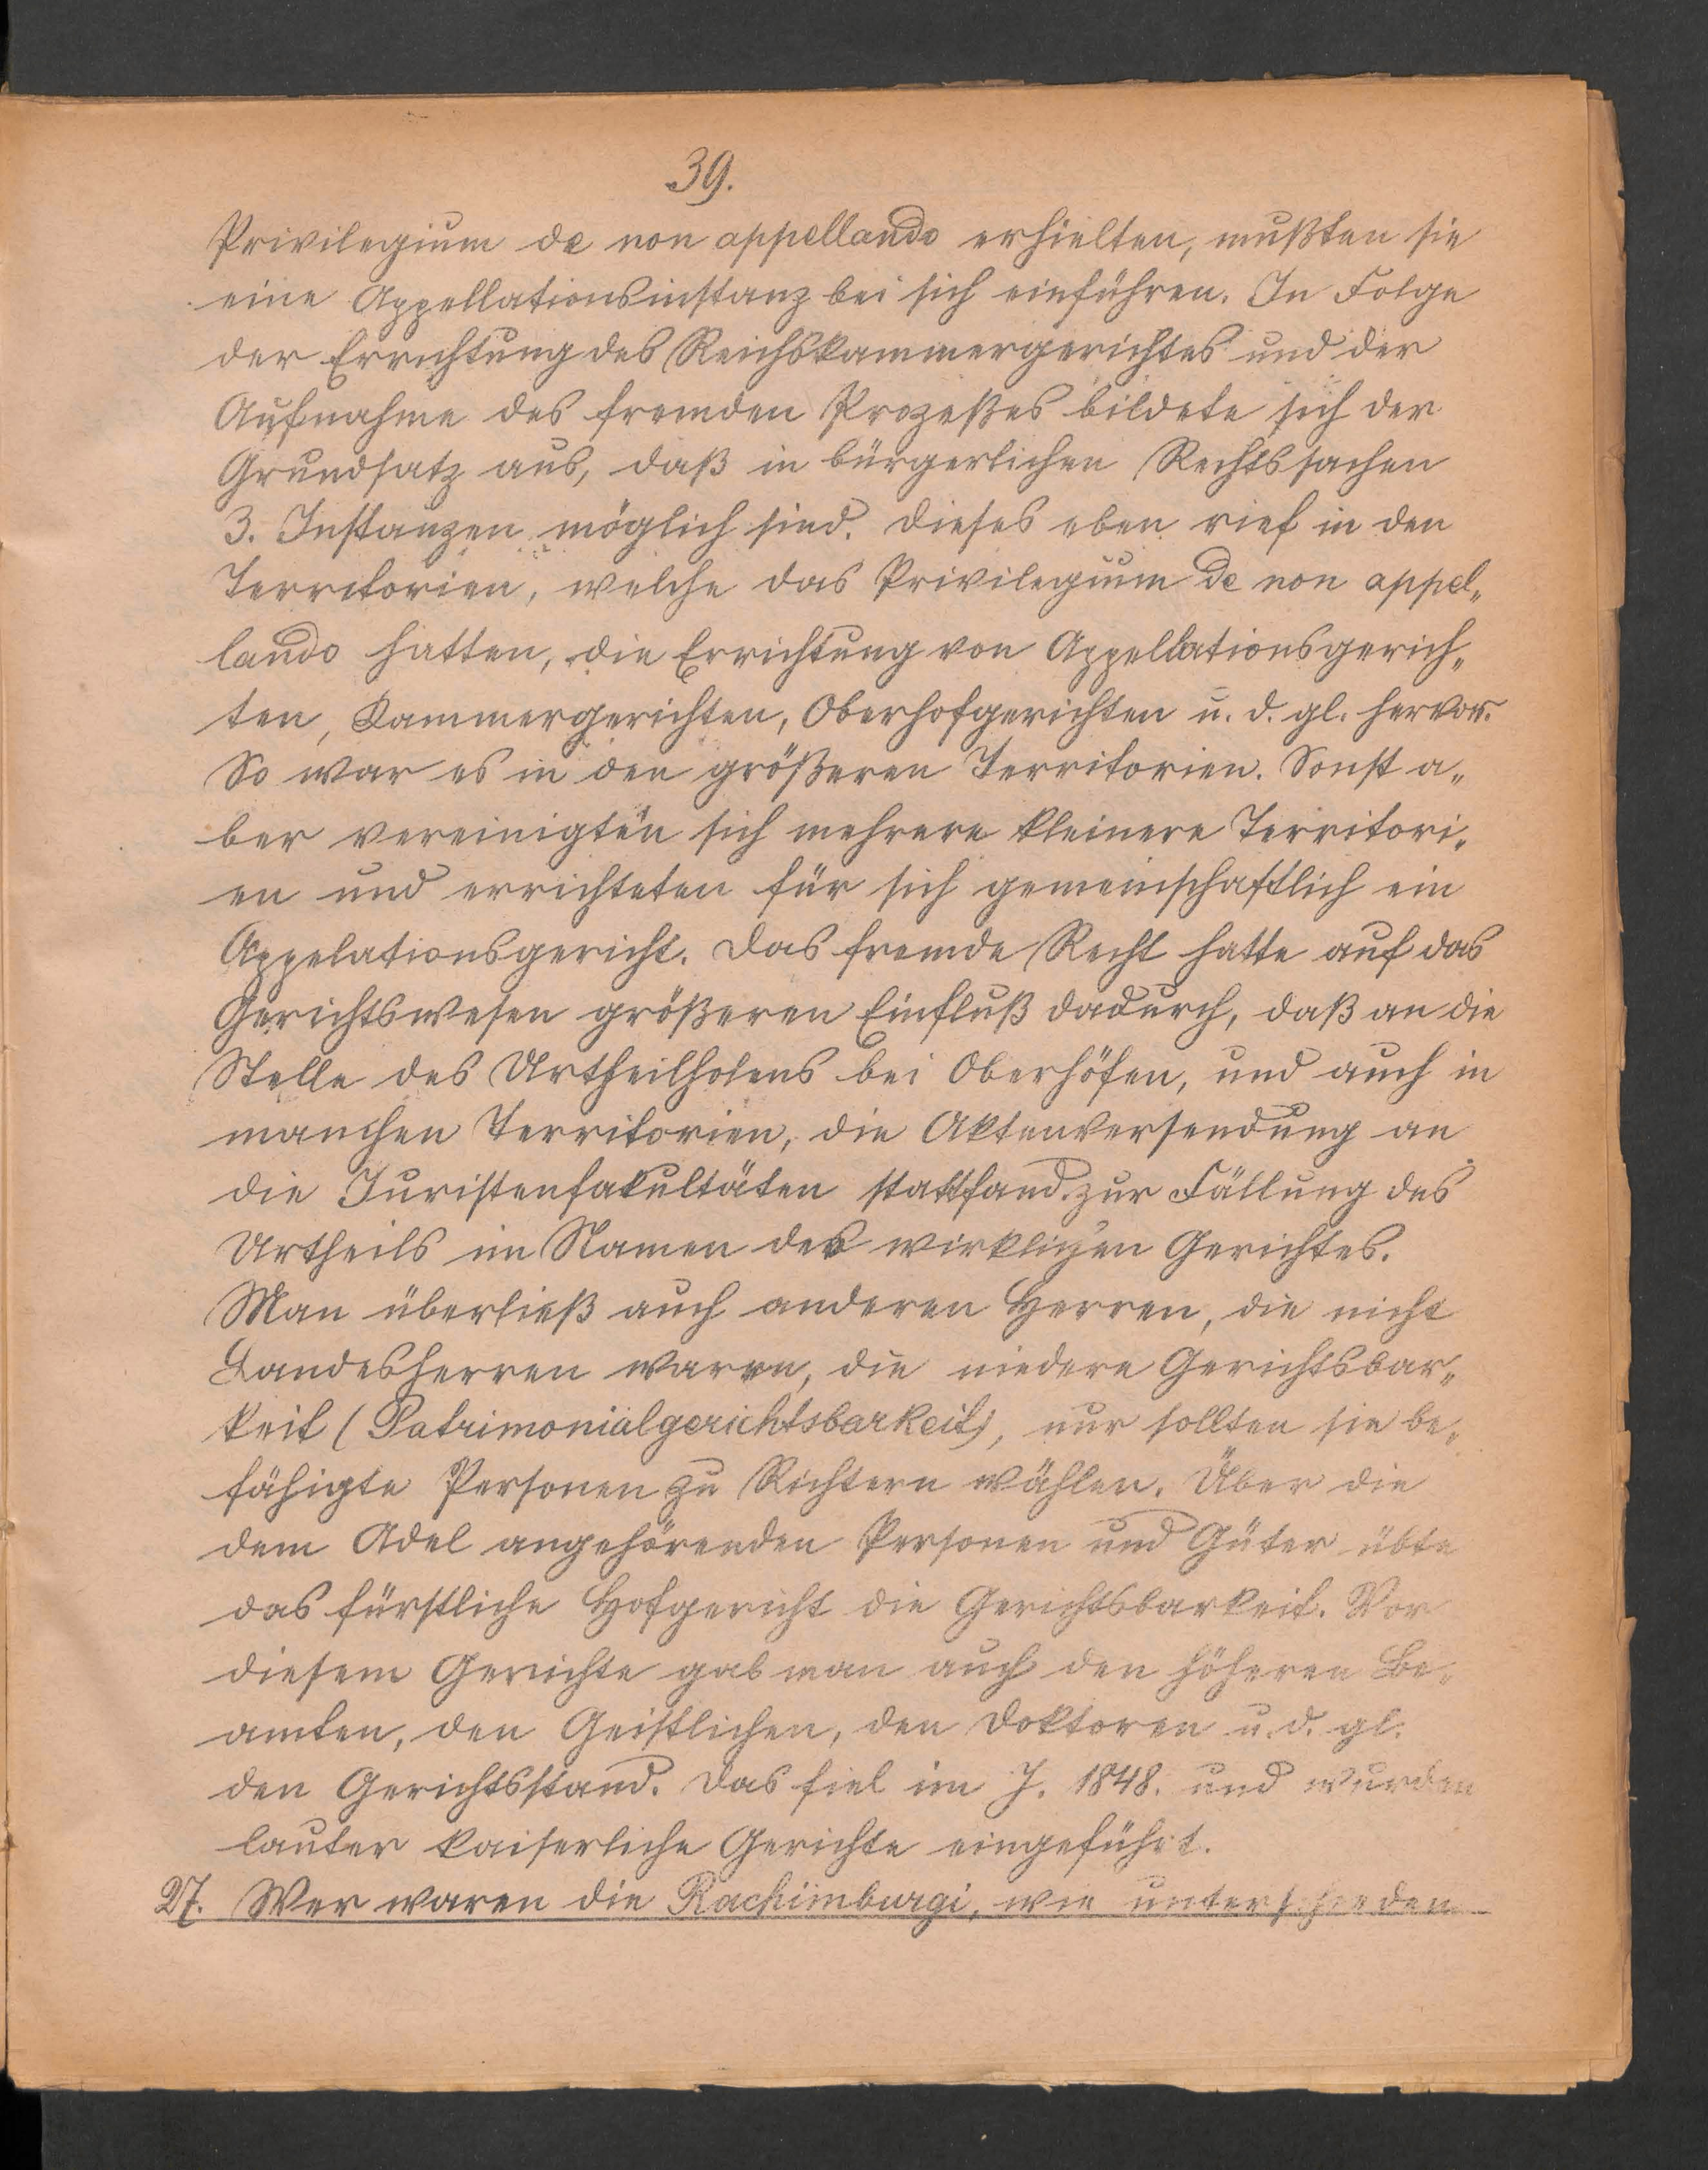 39.
Privilegium de non appellando erhielten, mußten sie
eine Appellationsinstanz bei sich einführen. In Folge
der Errichtung des Reichskammergerichtes und der
Aufnahme des fremden Prozeßes bildete sich der
Grundsatz aus, daß in bürgerlichen Rechtssachen
3. Instanzen möglich sind. Dieses eben rief in den
Territorien, welche das Privilegium de non appel„
lando hatten, die Errichtung von Appellationsgerich„
ten, Kammergerichten, Oberhofgerichten u. d. gl. hervor.
So war es in den größeren Territorien. Sonst a„
ber vereinigten sich mehrere kleinere Territori„
en und errichteten für sich gemeinschaftlich ein
Appelationsgericht. Das fremde Recht hatte auf das
Gerichtswesen größeren Einfluß dadurch, daß an die
Stelle des Urtheilholens bei Oberhöfen, und auch in
manchen Territorien, die Aktenversendung an
die Juristenfakultäten stattfand zur Fällung des
Urtheils im Namen des wirklichen Gerichtes.
Man überließ auch anderen Herren, die nicht
Landesherren waren, die niedere Gerichtsbar„
keit (Patrimonialgerichtsbarkeit), nur sollten sie be„
fähigte Personen zu Richtern wählen. Über die
dem Adel angehörenden Personen und Güter übte
das fürstliche Hofgericht die Gerichtsbarkeit. Vor
diesem Gerichte gab man auch den höheren Be„
amten, den Geistlichen, den Doktoren u. d. gl.
den Gerichtsstand. Das fiel im J. 1848. und wurden
lauter kaiserliche Gerichte eingeführt.
27. Wer waren die Rachimburgi, wie unterschieden